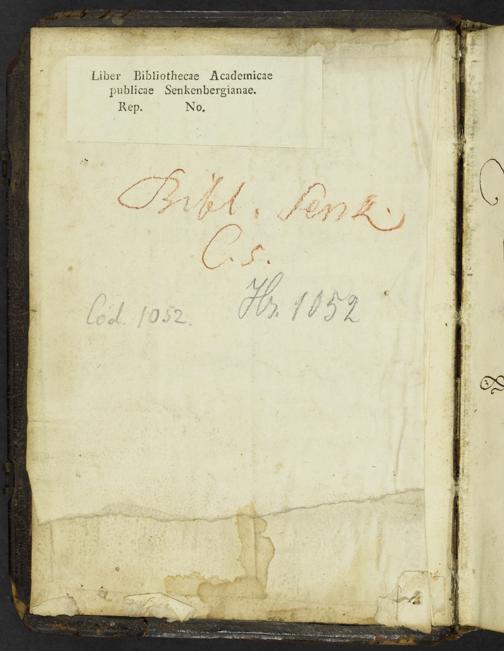 Liber Bibliothecae Academicae
publicae Senkenbergianae.
Rep. No.
Bibl. Senk.
C. s.
Cod. 1052.
Hs. 1052